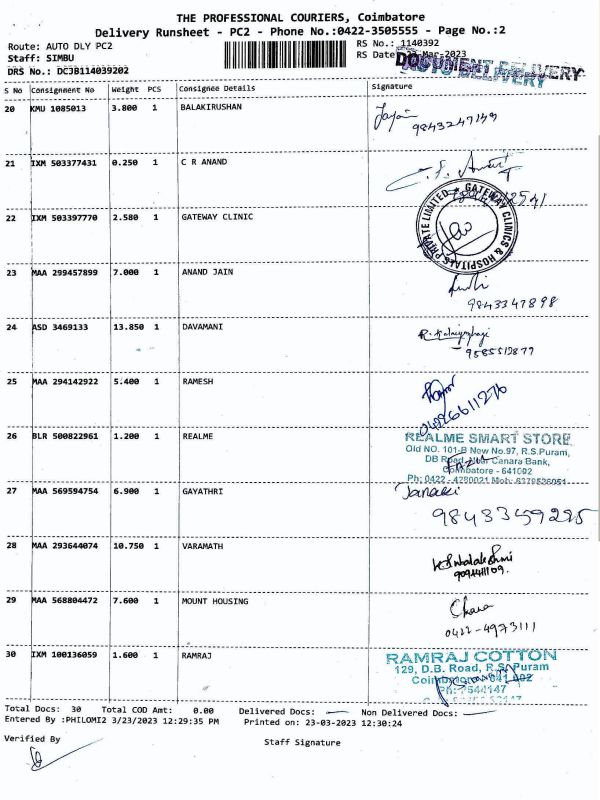 THE PROFESSIONAL COURIERS, Coimbatore
Delivery Runsheet - PC2 - Phone No.:0422-3505555 - Page No.:2
Route: AUTO DLY PC2
RS No.: 1140392
Staff: SIMBU
RS Date: 23-Mar-2023
DOCUMENT DELIVERY
AUTO DELIVERY
DRS No.: DCJB114039202
S No Consignment No Weight PCS Consignee Details Signature
20 KMU 1085013 3.800 1 BALAKIRUSHAN
9843247149
21 IXM 503377431 0.250 1 C R ANAND
22 IXM 503397770 2.580 1 GATEWAY CLINIC
GATEWAY CLINICS & HOSPITALS PRIVATE LIMITED
23 MAA 299457899 7.000 1 ANAND JAIN
9843347898
24 ASD 3469133 13.850 1 DAVAMANI
25 MAA 294142922 5.400 1 RAMESH
04226611276
26 BLR 500822961 1.200 1 REALME
REALME SMART STORE
Old NO. 101-B New No.97, R.S.Puram,
DB Road, Near Canara Bank,
Coimbatore - 641002
Ph: 0422 - 4280021
27 MAA 569594754 6.900 1 GAYATHRI
Janaki
28 MAA 293644074 10.750 1 VARAMATH
29 MAA 568804472 7.600 1 MOUNT HOUSING
0422-4973111
30 IXM 100136059 1.600 1 RAMRAJ
RAMRAJ COTTON
129, D.B. Road, R.S.Puram
Coimbatore-641 002
Total Docs: 30 Total COD Amt: 0.00 Delivered Docs: Non Delivered Docs:
Entered By :PHILOMI2 3/23/2023 12:29:35 PM Printed on: 23-03-2023 12:30:24
Verified By
Staff Signature